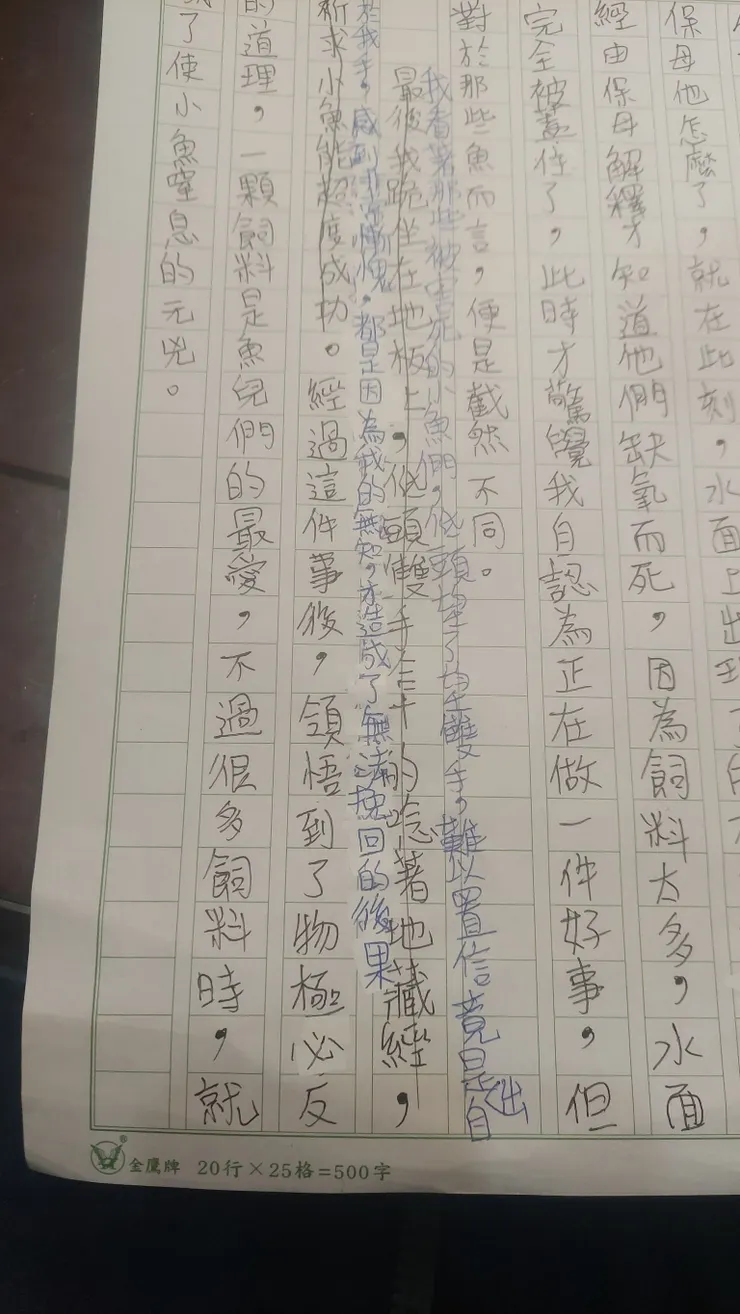 保母他怎麼了，就在此刻，水面上出現
經由保母解釋才知道他們缺氧而死，因為飼料太多，水面
完全被蓋住了，此時才驚覺我自認為正在做一件好事，但
對於那些魚而言，便是截然不同。
我看著那些被害死的小魚們，低頭望了望雙手，難以置信竟是出自
最後我跪坐在地板上，低頭雙手合十的唸著地藏經，
於我手，感到非常慚愧，都是因為我的無知，才造成了無法挽回的後果
祈求小魚能超度成功。經過這件事後，領悟到了物極必反
的道理，一顆飼料是魚兒們的最愛，不過很多飼料時，就
了使小魚窒息的元兇。
金鷹牌 20行×25格=500字